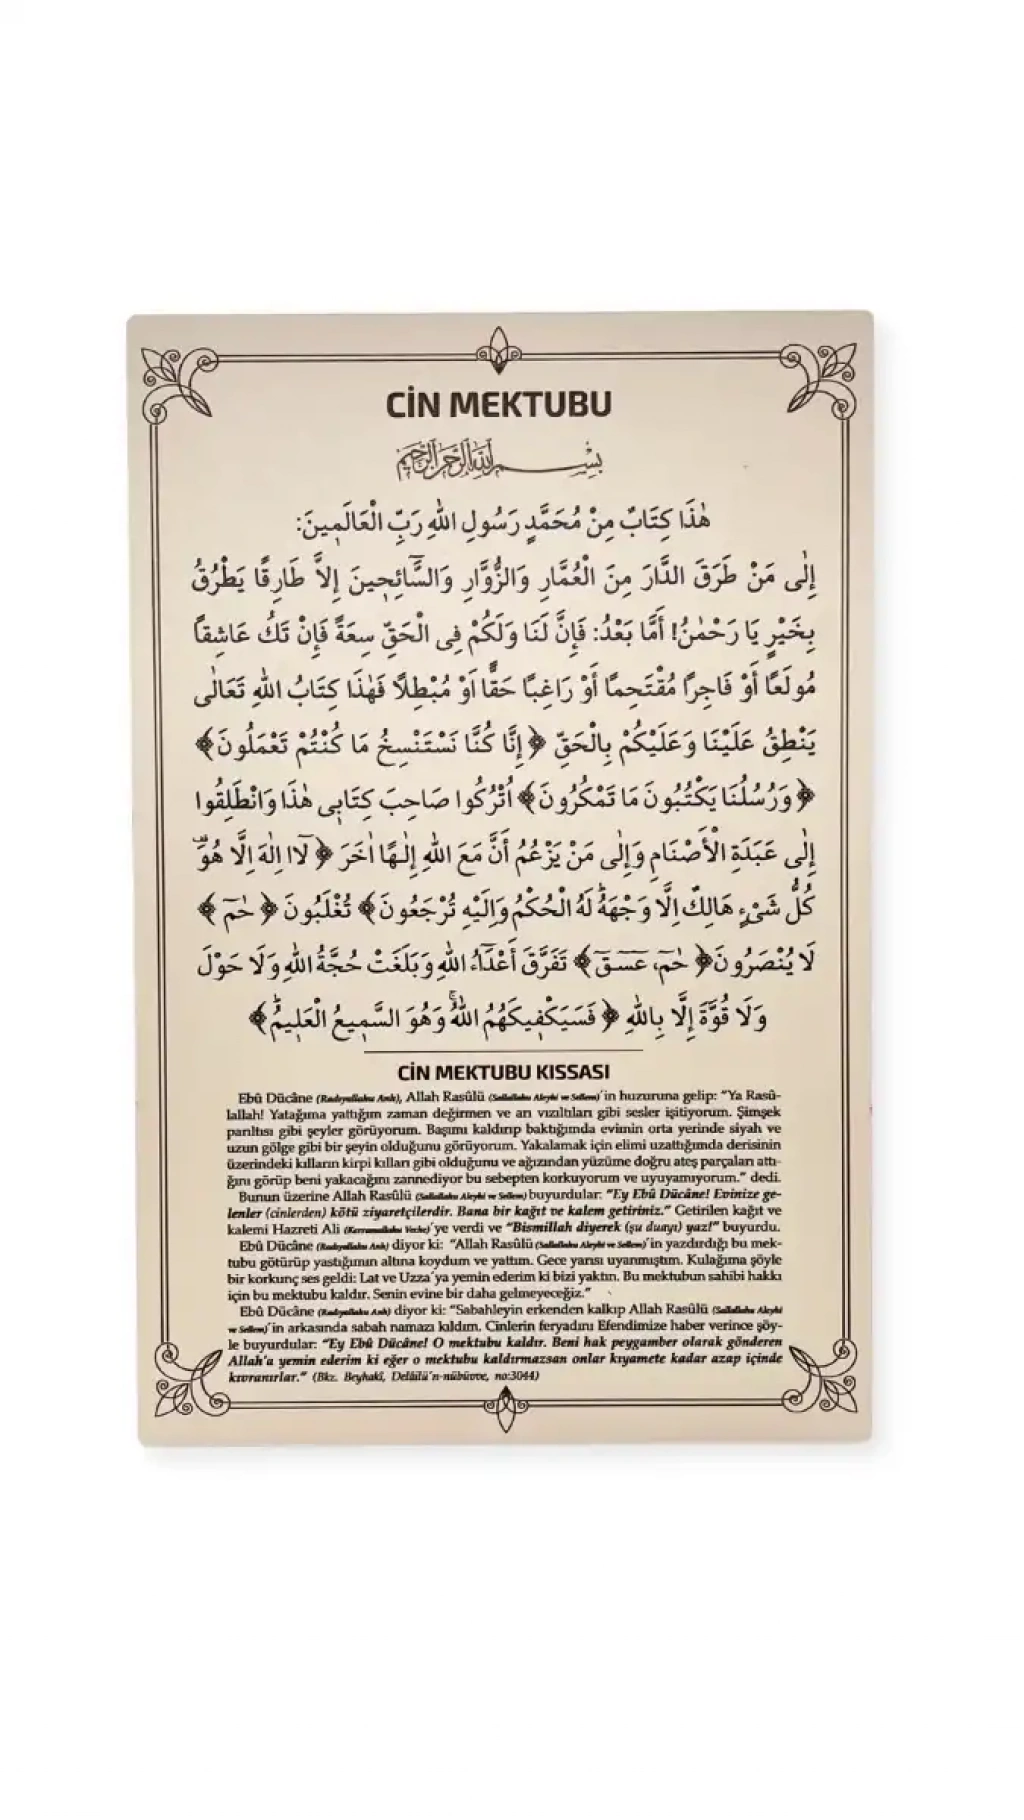 CİN MEKTUBU
بِسْمِ اللهِ الرَّحْمٰنِ الرَّحِيمِ
هٰذَا كِتَابٌ مِنْ مُحَمَّدٍ رَسُولِ اللهِ رَبِّ الْعَالَمِينَ:
إِلٰى مَنْ طَرَقَ الدَّارَ مِنَ الْعُمَّارِ وَالزُّوَّارِ وَالسَّائِحِينَ إِلاَّ طَارِقًا يَطْرُقُ
بِخَيْرٍ يَا رَحْمٰنُ! أَمَّا بَعْدُ: فَإِنَّ لَنَا وَلَكُمْ فِى الْحَقِّ سِعَةً فَإِنْ تَكُ عَاشِقاً
مُولَعًا أَوْ فَاجِرًا مُقْتَحِمًا أَوْ رَاغِبًا حَقًّا اَوْ مُبْطِلاً فَهٰذَا كِتَابُ اللهِ تَعَالٰى
يَنْطِقُ عَلَيْنَا وَعَلَيْكُمْ بِالْحَقِّ ﴿إِنَّا كُنَّا نَسْتَنْسِخُ مَا كُنْتُمْ تَعْمَلُونَ﴾
﴿وَرُسُلُنَا يَكْتُبُونَ مَا تَمْكُرُونَ﴾ اُتْرُكُوا صَاحِبَ كِتَابِى هٰذَا وَانْطَلِقُوا
إِلٰى عَبَدَةِ الْأَصْنَامِ وَإِلٰى مَنْ يَزْعُمُ أَنَّ مَعَ اللهِ إِلٰهًا اٰخَرَ ﴿لَآ اِلٰهَ اِلَّا هُوَ
كُلُّ شَىْءٍ هَالِكٌ اِلَّا وَجْهَهُ لَهُ الْحُكْمُ وَاِلَيْهِ تُرْجَعُونَ﴾ تُغْلَبُونَ ﴿حٰمٓ﴾
لَا يُنْصَرُونَ ﴿حٰمٓ، عٓسٓقٓ﴾ تَفَرَّقَ أَعْدَٓاءُ اللهِ وَبَلَغَتْ حُجَّةُ اللهِ وَلَا حَوْلَ
وَلَا قُوَّةَ إِلَّا بِاللهِ ﴿فَسَيَكْفِيكَهُمُ اللهُ وَهُوَ السَّمِيعُ الْعَلِيمُ﴾
CİN MEKTUBU KISSASI
Ebû Dücâne (Radıyallahu Anh), Allah Rasûlü (Sallallahu Aleyhi ve Sellem)'in huzuruna gelip: "Ya Rasû-
lallah! Yatağıma yattığım zaman değirmen ve arı vızıltıları gibi sesler işitiyorum. Şimşek
parıltısı gibi şeyler görüyorum. Başımı kaldırıp baktığımda evimin orta yerinde siyah ve
uzun gölge gibi bir şeyin olduğunu görüyorum. Yakalamak için elimi uzattığımda derisinin
üzerindeki kılların kirpi kılları gibi olduğunu ve ağızından yüzüme doğru ateş parçaları attı-
ğını görüp beni yakacağını zannediyor bu sebepten korkuyorum ve uyuyamıyorum." dedi.
Bunun üzerine Allah Rasûlü (Sallallahu Aleyhi ve Sellem) buyurdular: "Ey Ebû Dücâne! Evinize ge-
lenler (cinlerden) kötü ziyaretçilerdir. Bana bir kağıt ve kalem getiriniz." Getirilen kağıt ve
kalemi Hazreti Ali (Kerremallahu Veche)'ye verdi ve "Bismillah diyerek (şu duayı) yaz!" buyurdu.
Ebû Dücâne (Radıyallahu Anh) diyor ki: "Allah Rasûlü (Sallallahu Aleyhi ve Sellem)'in yazdırdığı bu mek-
tubu götürüp yastığımın altına koydum ve yattım. Gece yarısı uyanmıştım. Kulağıma şöyle
bir korkunç ses geldi: Lat ve Uzza'ya yemin ederim ki bizi yaktın. Bu mektubun sahibi hakkı
için bu mektubu kaldır. Senin evine bir daha gelmeyeceğiz."
Ebû Dücâne (Radıyallahu Anh) diyor ki: "Sabahleyin erkenden kalkıp Allah Rasûlü (Sallallahu Aleyhi
ve Sellem)'in arkasında sabah namazı kıldım. Cinlerin feryadını Efendimize haber verince şöy-
le buyurdular: "Ey Ebû Dücâne! O mektubu kaldır. Beni hak peygamber olarak gönderen
Allah'a yemin ederim ki eğer o mektubu kaldırmazsan onlar kıyamete kadar azap içinde
kıvranırlar." (Bkz. Beyhakî, Delâilü'n-nübüvve, no:3044)